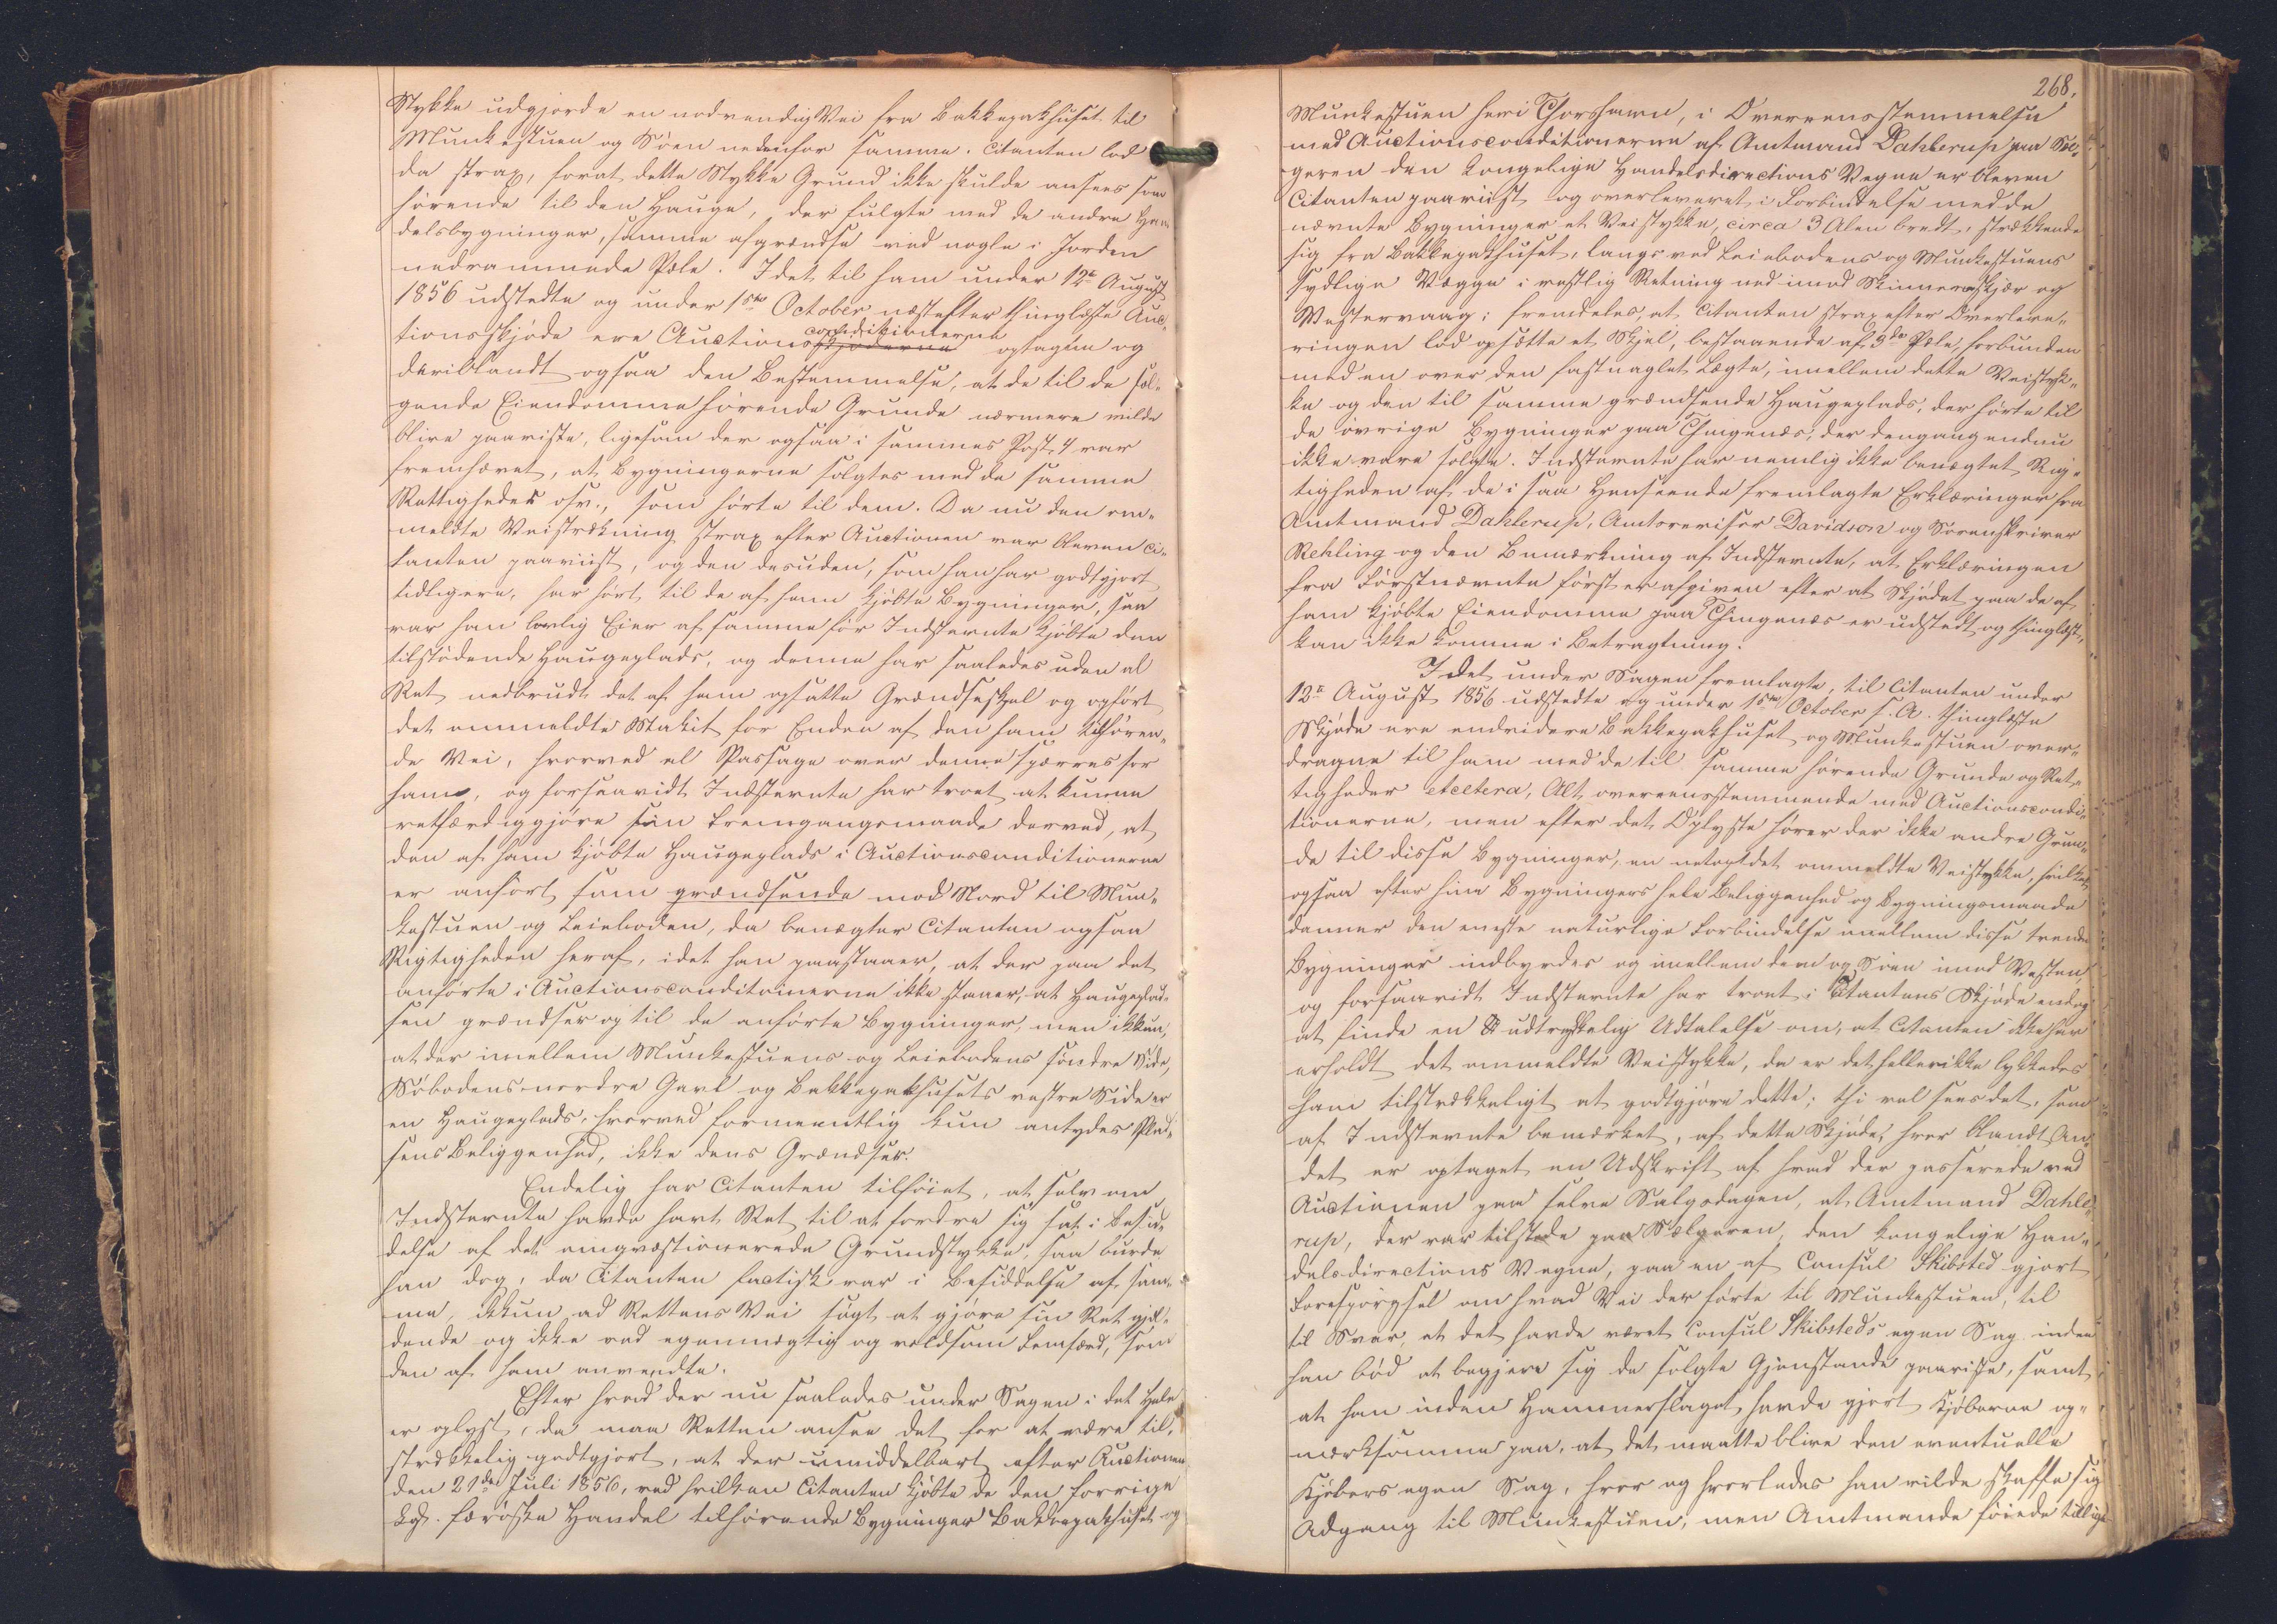 Stykke udgjorde en nødvendig Vei fra Bakkepakhuset til
Munkestuen og Søen nedenfor samme. Citanten lod
da strax, forat dette Stykke Grund ikke skulde ansees som
hørende til den Hauge, der fulgte med de andre Han-
delsbygninger, samme afgrændse ved nogle i Jorden
nedrammede Pæle. I det til ham under 12te August
1856 udstedte og under 1ste October næstefter thinglæste Auc-
tionsskjøde ere Auctions skjøderne conditionerne optagne og
deriblandt ogsaa den Bestemmelse, at de til de søl-
gende Eiendomme hørende Grunde nærmere vilde
blive paaviste, ligesom der ogsaa i sammes Post 4 var
fremhævet, at Bygningerne solgtes med de samme
Rettigheder osv., som hørte til dem. Da nu den om-
meldte Veistrækning strax efter Auctionen var bleven Ci-
tanten paaviist, og den desuden, som han har godtgjort
tidligere, har hørt til de af ham kjøbte Bygninger, saa
var han lovlig Eier af samme før Indstevnte kjøbte den
tilstødende Haugeplads, og denne har saaledes uden al
Ret nedbrudt det af ham opsatte Grændseskjel og opført
det ommeldte Stakit for Enden af den ham tilhøren-
de Vei, hvorved al Passage over denne spærres for
ham, og forsaavidt Indstevnte har troet at kunne
retfærdiggjøre sin Fremgangsmaade derved, at
den af ham kjøbte Haugeplads i Auctionsconditionerne
er anført som grændsende mod Nord til Mun-
kestuen og Leieboden, da benægter Citanten ogsaa
Rigtigheden heraf, idet han paastaaer, at der paa det
anførte i Auctionsconditionerne ikke staaer, at Haugeplad-
sen grændser op til de anførte Bygninger, men ikkun,
at der imellem Munkestuens og Leiebodens søndre Side,
Søbodens nordre Gavl og Bakkepakhusets vestre Side er
en Haugeplads, hvorved formeentlig kun antydes Plad-
sens Beliggenhed, ikke dens Grændser.
Endelig har Citanten tilføiet, at selv om
Indstevnte havde havt Ret til at fordre sig sat i Besid-
delse af det omqvæstionerede Grundstykke, saa burde
han dog, da Citanten factisk var i Besiddelse af sam-
me, ikkun ad Rettens Vei søgt at gjøre sin Ret gjæl-
dende og ikke ved egenmægtig og voldsom Fremfærd, som
den af ham anvendte.
Efter hvad der nu saaledes under Sagen i det Hele
er oplyst, da maa Retten ansee det for at være til-
strækkelig godtgjort, at der umiddelbart efter Auctionen
den 21de Juli 1856, ved hvilken Citanten kjøbte de den forrige
Kgl. færøske Handel tilhørende Bygninger Bakkepakhuset og
268.
Munkestuen heri Thorshavn, i Overeensstemmelse
med Auctionsconditionerne af Amtmand Dahlerup paa Sæl-
geren den Kongelige Handelsdirections Vegne er bleven
Citanten paaviist og overleveret i Forbindelse med de
nævnte Bygninger et Veistykke, circa 3 Alen bredt, strækkende
sig fra Bakkepakhuset, langs ved Leiebodens og Munkestuens
sydlige Vægge i vestlig Retning ned imod Skinnerskjær og
Vestervaag; fremdeles, at Citanten strax efter Overleve-
ringen lod opsætte et Skjel, bestaaende af 3de Pæle, forbunden
med en over den fastnaglet Lægte, imellem dette Veistyk-
ke og den til samme grændsende Haugeplads, der hørte til
de øvrige Bygninger paa Thingenæs, der dengang endnu
ikke vare solgte. Indstevnte har nemlig ikke benægtet Rig-
tigheden af de i saa Henseende fremlagte Erklæringer fra
Amtmand Dahlerup, Amtsrevisor Davidson og Sorenskriver
Røhling og den Bemærkning af Indstevnte, at Erklæringen
fra Førstnævnte først er afgiven efter at Skjødet paa de af
ham kjøbte Eiendomme paa Thingenæs er udstedt og thinglæst,
kan ikke komme i Betragtning.
I det under Sagen fremlagte, til Citanten under
12te August 1856 udstedte og under 1ste October s. A. thinglæste
Skjøde ere endvidere Bakkepakhuset og Munkestuen over-
dragne til ham med de til samme hørende Grunde og Ret-
tigheder etcetera, Alt overeensstemmende med Auctionscondi-
tionerne, men efter det Oplyste hører der ikke andre Grun-
de til disse Bygninger, en netop det ommeldte Veistykke, hvilket
ogsaa efter hine Bygningers hele Beliggenhed og Bygningsmaade
danner den eneste naturlige Forbindelse imellem disse trende
Bygninger indbyrdes og imellem dem og Søen imod Vesten,
og forsaavidt Indstevnte har troet i Citantens Skjøde endog
at finde en udtrykkelig Udtalelse om, at Citanten ikke har
erholdt det ommeldte Veistykke, da er det heller ikke lykkedes
ham tilstrækkeligt at godtgjøre dette; thi vel sees det, som
af Indstevnte bemærket, af dette Skjøde, hvor blandt An-
det er optaget en Udskrift af hvad der passerede ved
Auctionen paa selve Salgsdagen, at Amtmand Dahle-
rup, der var tilstede paa Sælgeren, den kongelige Han-
delsdirections Vegne, paa en af Consul Skibsted gjort
Forespørgsel om hvad Vei der førte til Munkestuen, til
til Svar, at det havde været Consul Skibsteds egen Sag inden
han bød at begjere sig de solgte Gjenstande paaviste, samt
at han inden Hammerslaget havde gjort Kjøberne op-
mærksomme paa, at det maatte blive den eventuelle
Kjøbers egen Sag, hvor og hvorledes han vilde skaffe sig
Adgang til Munkestuen, men Amtmanden føiede tillige